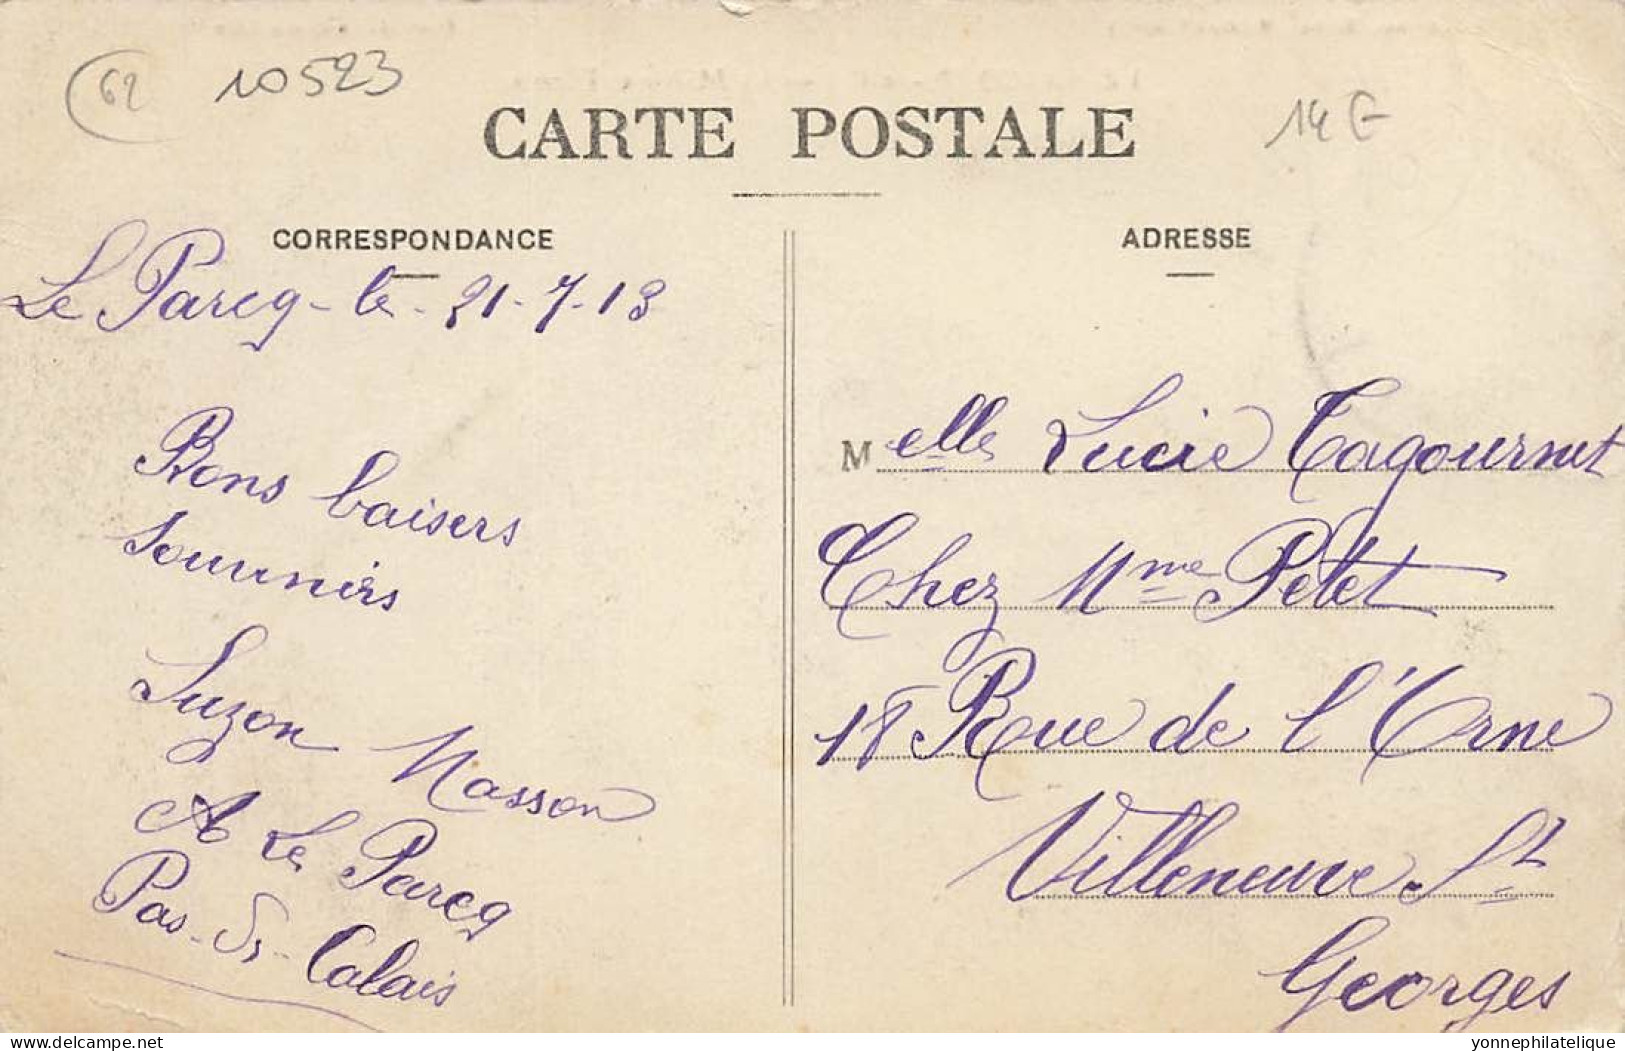 62
10523
14 E
CARTE POSTALE
CORRESPONDANCE
Le Parcq - le - 21-7-13
Bons baisers
Souvenirs
Suzon Masson
A Le Parcq
Pas-de-Calais
ADRESSE
Melle Lucie Tagournet
Chez Mme Petet
18 Rue de l'Orne
Villeneuve-St
Georges
delcampe.net
yonnephilatelique